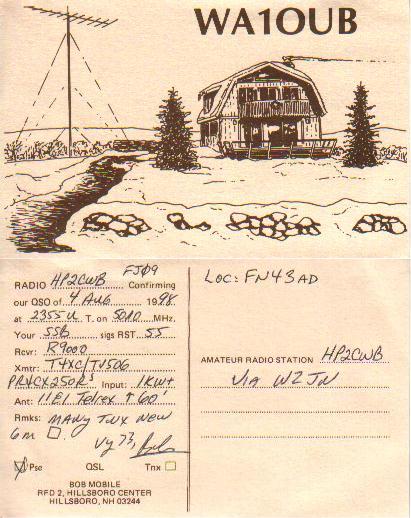 WA1OUB
FJ09
RADIO HP2CWB Confirming
our QSO of 4 AUG 1998
at 2355 U T. on 50110 MHz.
Your SSB sigs RST 55
Rcvr: R9000
Xmtr: T4XC/TV506
PR4CX250R's Input: 1KW+
Ant: 11 El Telrex ↑ 60'
Rmks: MANY TNX NEW
6m □.
Vy 73, Bob
Pse QSL Tnx
BOB MOBILE
RFD 2, HILLSBORO CENTER
HILLSBORO, NH 03244
LOC: FN43AD
AMATEUR RADIO STATION HP2CWB
VIA WZJN